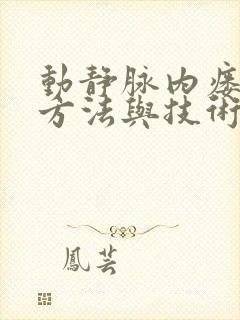 動靜脈內瘻
方法與技術
鳳芸